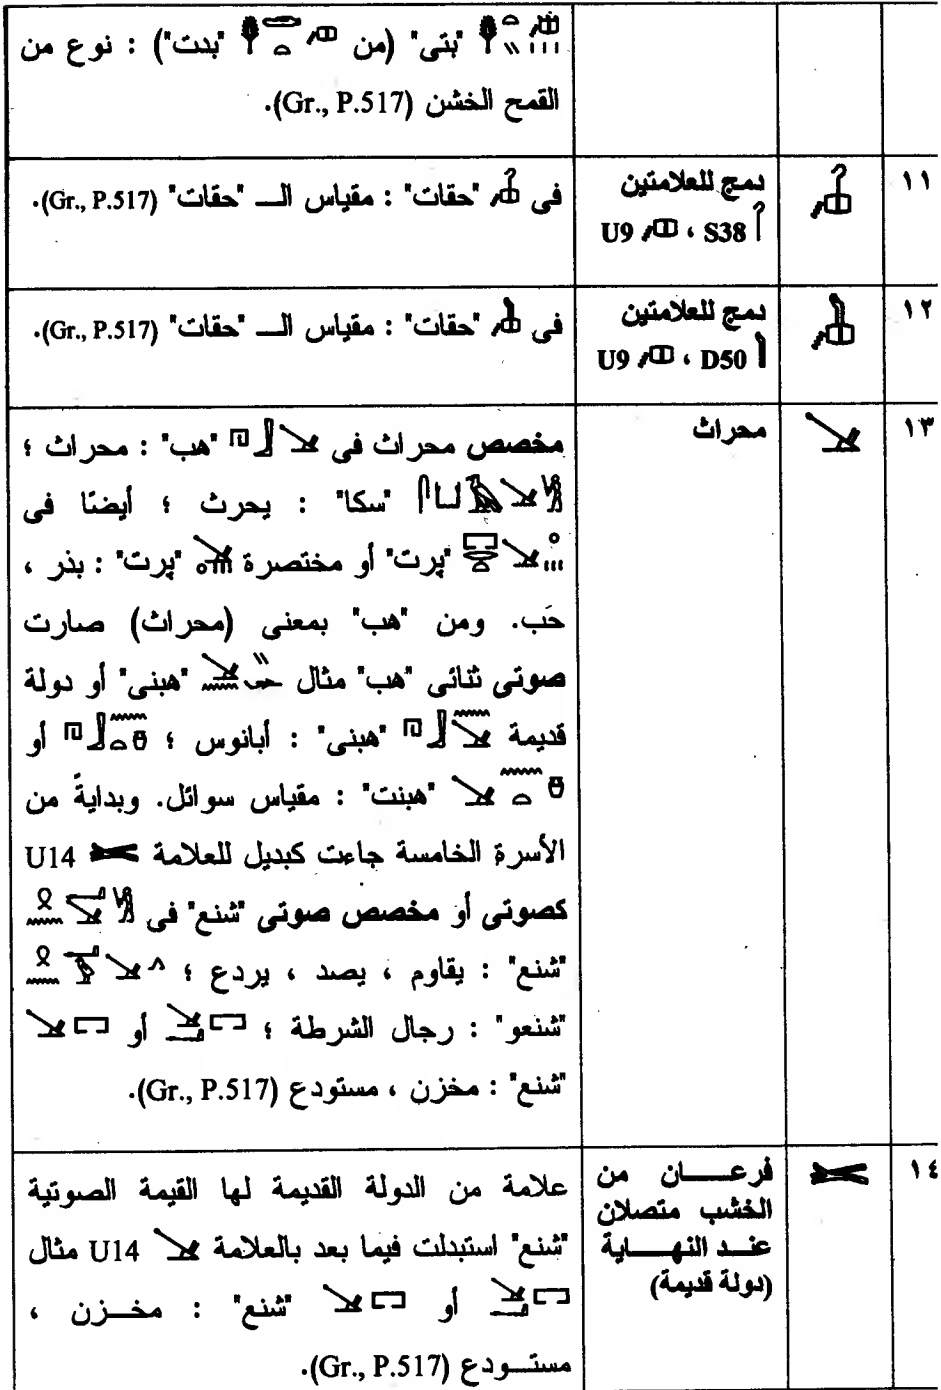 "بتى" (من "بدت") : نوع من
القمح الخشن (Gr., P.517).
١١
دمج للعلامتين
S38 ، U9
فى "حقات" : مقياس الـــ "حقات" (Gr., P.517).
١٢
دمج للعلامتين
D50 ، U9
فى "حقات" : مقياس الـــ "حقات" (Gr., P.517).
١٣
محراث
مخصص محراث فى "هب" : محراث ؛
"سكا" : يحرث ؛ أيضًا فى
"پرت" أو مختصرة "پرت" : بذر ،
حَب. ومن "هب" بمعنى (محراث) صارت
صوتى ثنائى "هب" مثال "هبنى" أو دولة
قديمة "هبنى" : أبانوس ؛ أو
"هبنت" : مقياس سوائل. وبدايةً من
الأسرة الخامسة جاءت كبديل للعلامة U14
كصوتى أو مخصص صوتى "شنع" فى
"شنع" : يقاوم ، يصد ، يردع ؛
"شنعو" : رجال الشرطة ؛ أو
"شنع" : مخزن ، مستودع (Gr., P.517).
١٤
فرعـــــان من
الخشب متصلان
عنــد النهـــــاية
(دولة قديمة)
علامة من الدولة القديمة لها القيمة الصوتية
"شنع" استبدلت فيما بعد بالعلامة U14 مثال
أو "شنع" : مخــزن ،
مستــودع (Gr., P.517).